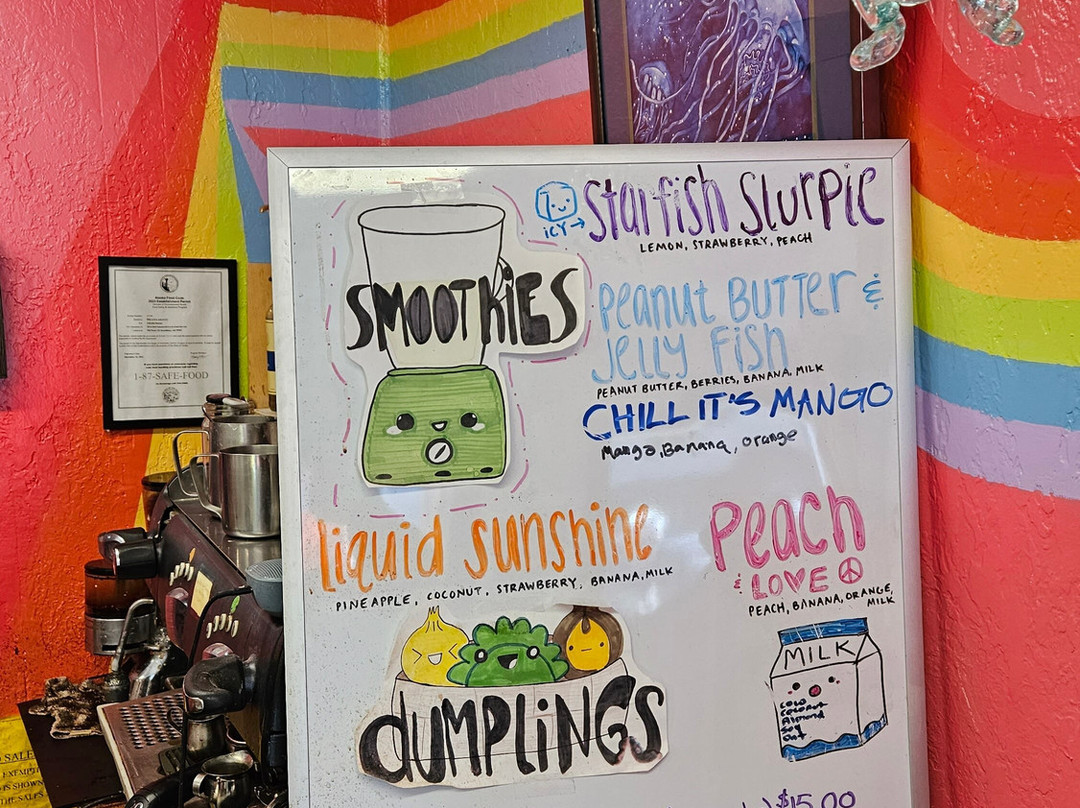 SMOOTHIES
ICY→
Starfish Slurpie
LEMON, STRAWBERRY, PEACH
Peanut BUTTEr &
JELLY FISH
PEANUT BUTTER, BERRIES, BANANA, MILK
CHILL IT'S MANGO
Mango, Banana, orange
liquid sunshine
PINEAPPLE, COCONUT, STRAWBERRY, BANANA, MILK
Peach
n'
LOVE
PEACH, BANANA, ORANGE,
MILK
dUMPLiNGS
MILK
Coconut
Almond
Soy
Oat
$15.00
1-87-SAFE-FOOD
Alaska Food Code
SALE
EXEMPT
IS SHOWN
THE SALES